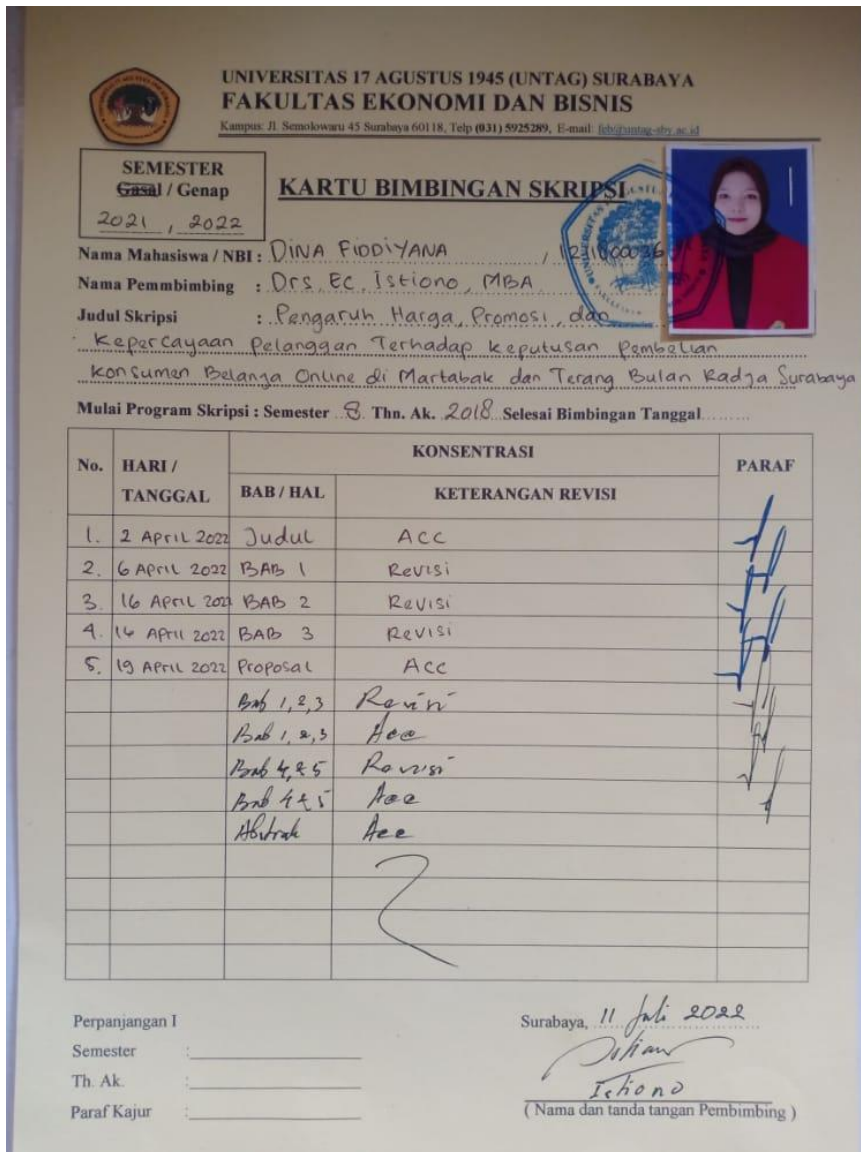 UNIVERSITAS 17 AGUSTUS 1945 (UNTAG) SURABAYA
FAKULTAS EKONOMI DAN BISNIS
Kampus: Jl. Semolowaru 45 Surabaya 60118, Telp (031) 5925289, E-mail: feb@untag-sby.ac.id
SEMESTER
Gasal / Genap
2021 , 2022
KARTU BIMBINGAN SKRIPSI
Nama Mahasiswa / NBI : DINA FIDDIYANA /
Nama Pemmbimbing : Drs. Ec. Istiono, MBA
Judul Skripsi : Pengaruh Harga, Promosi, dan
Kepercayaan Pelanggan Terhadap Keputusan Pembelian
Konsumen Belanja Online di Martabak dan Terang Bulan Radja Surabaya
Mulai Program Skripsi : Semester 8 Thn. Ak. 2018 Selesai Bimbingan Tanggal
No. HARI / TANGGAL KONSENTRASI PARAF
BAB / HAL KETERANGAN REVISI
1. 2 April 2022 Judul ACC
2. 6 April 2022 BAB 1 Revisi
3. 16 April BAB 2 Revisi
4. April 2022 BAB 3 Revisi
5. 19 April 2022 Proposal Acc
Bab 1, 2, 3 Revisi
Bab 1, 2, 3 Acc
Bab 4, & 5 Revisi
Bab 4 & 5 Acc
Abstrak Acc
Perpanjangan I
Semester :
Th. Ak. :
Paraf Kajur :
Surabaya, 11 Juli 2022
Istiono
( Nama dan tanda tangan Pembimbing )